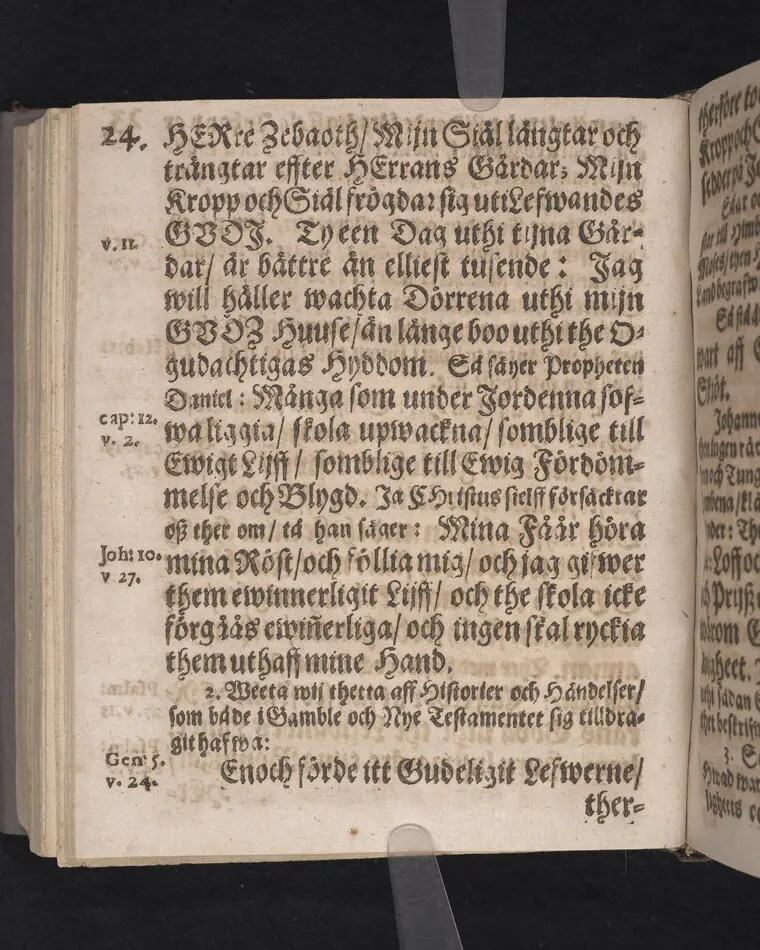 24. HERre Zebaoth/ Mijn Siäl längtar och
trängtar effter HErrans Gårdar; Mijn
Kropp och Siäl frögdar sig uti Lefwandes
v. 11. GVDJ. Ty een Dag uthi tijna Går-
dar/ är bättre än elliest tusende: Jag
will häller wachta Dörrena uthi mijn
GVDZ Huuse/ än länge boo uthi the O-
gudachtigas Hyddom. Så säyer Propheten
Daniel: Många som under Jordenna sof-
cap: 12. v. 2. wa liggia/ skola upwackna/ somblige till
Ewigt Lijff/ somblige till Ewig Fördöm-
melse och Blygd. Ja CHristus sielff försäckrar
oß ther om/ tå han säger: Mina Fåår höra
Joh: 10. v 27. mina Röst/ och föllia mig/ och jag gifwer
them ewinnerligit Lijff/ och the skola icke
förgåås ewiñerliga/ och ingen skal ryckia
them uthaff mine Hand.
2. Weeta wij thetta aff Historier och Händelser/
som både i Gamble och Nye Testamentet sig tilldra-
git hafwa:
Gen: 5. v. 24. Enoch förde itt Gudeligit Lefwerne/
ther-
therföre
Kropp och
Moses/ then
wart aff
Skiöt.
Johann